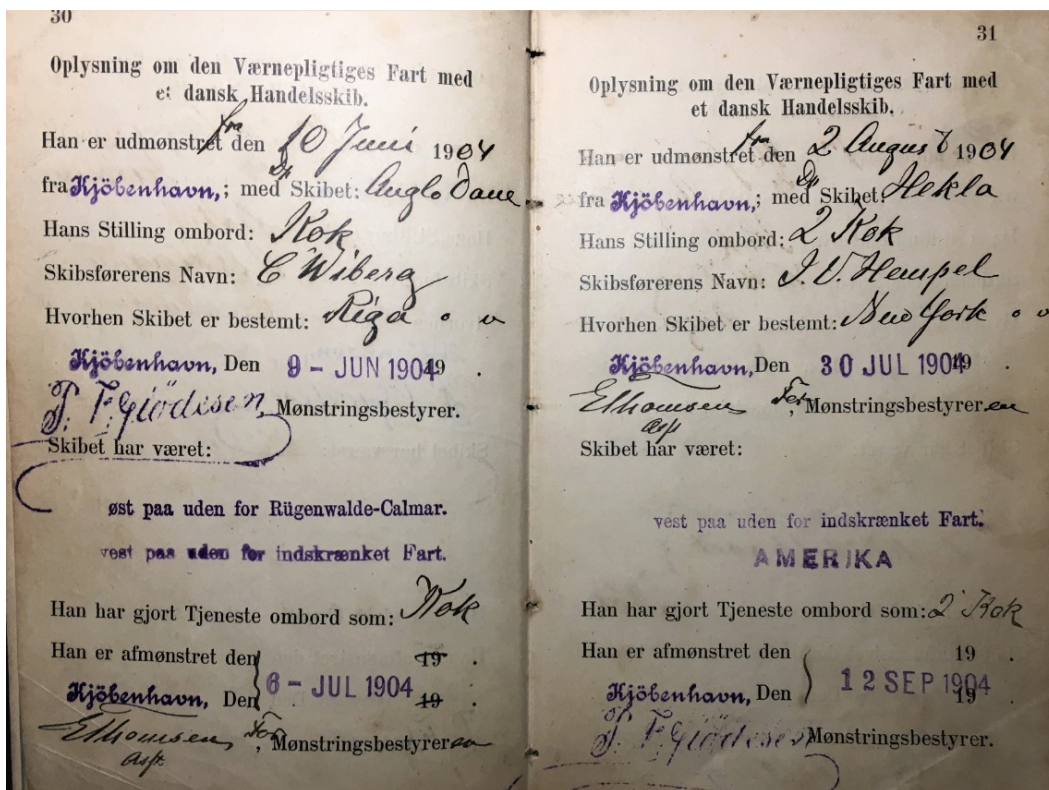 30
Oplysning om den Værnepligtiges Fart med
et dansk Handelsskib.
Han er udmønstret fra den 10 Juni 1904
fra Kjöbenhavn,; med Skibet: Dp Anglo Dane
Hans Stilling ombord: Kok
Skibsførerens Navn: C Wiberg
Hvorhen Skibet er bestemt: Riga
Kjöbenhavn, Den 9 - JUN 1904 19 .
P. F. Giödesen, Mønstringsbestyrer.
Skibet har været:
øst paa uden for Rügenwalde-Calmar.
vest paa uden for indskrænket Fart.
Han har gjort Tjeneste ombord som: Kok
Han er afmønstret den 19 .
Kjöbenhavn, Den 6 - JUL 1904 19 .
EThomsen For, Mønstringsbestyreren
Asst
31
Oplysning om den Værnepligtiges Fart med
et dansk Handelsskib.
Han er udmønstret fra den 2 August 1904
fra Kjöbenhavn,; med Skibet: Dp Hekla
Hans Stilling ombord: 2 Kok
Skibsførerens Navn: J. V. Hempel
Hvorhen Skibet er bestemt: New York
Kjöbenhavn, Den 30 JUL 1904 19 .
EThomsen For, Mønstringsbestyreren
Asst
Skibet har været:
vest paa uden for indskrænket Fart.
AMERIKA
Han har gjort Tjeneste ombord som: 2 Kok
Han er afmønstret den 19 .
Kjöbenhavn, Den 12 SEP 1904 19 .
P. F. Giödesen Mønstringsbestyrer.